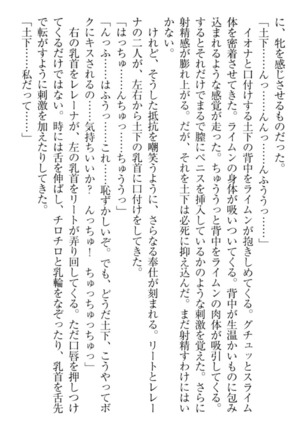 に、牝を感じさせるものだった。
「土下……んっ……んっ……んふううっ……」
イオナと口付けする土下の背中をライムンが抱きしめてくる。グチュッとスライム
体を密着させてきた。ライムンの身体が吸いついてくる。背中が生温かいものに包み
込まれるような感覚が走った。ちゅううっと背中をライムンの肉体が吸引してくる。
するとそれだけでまるで膣にペニスを挿入しているかのような刺激を覚えた。さらに
射精感が膨れ上がる。だが、それを土下は必死に抑え込んだ。まだ射精すわけにはい
かない。
けれど、そうした抵抗を嘲笑うように、さらなる奉仕が刻まれる。リートとレレー
ナの二人が、左右から土下の乳首に口付けをしてきた。
「はっちゅ……んちゅっ……ちゅううっ」
「んっふ……はふうっ……これ……恥ずかしいぞ。でも、どうだ土下、こうやってボ
クにキスされるの……気持ちいいか？　んっちゅ！　ちゅっちゅっちゅっ」
「土下……私だって……」
右の乳首をレレーナが、左の乳首をリートが弄り回してくる。ただ口唇を押しつけ
てくるだけではない。時には舌を伸ばし、チロチロと乳輪をなぞったり、乳首を舌先
で転がすように刺激を加えたりしてきた。